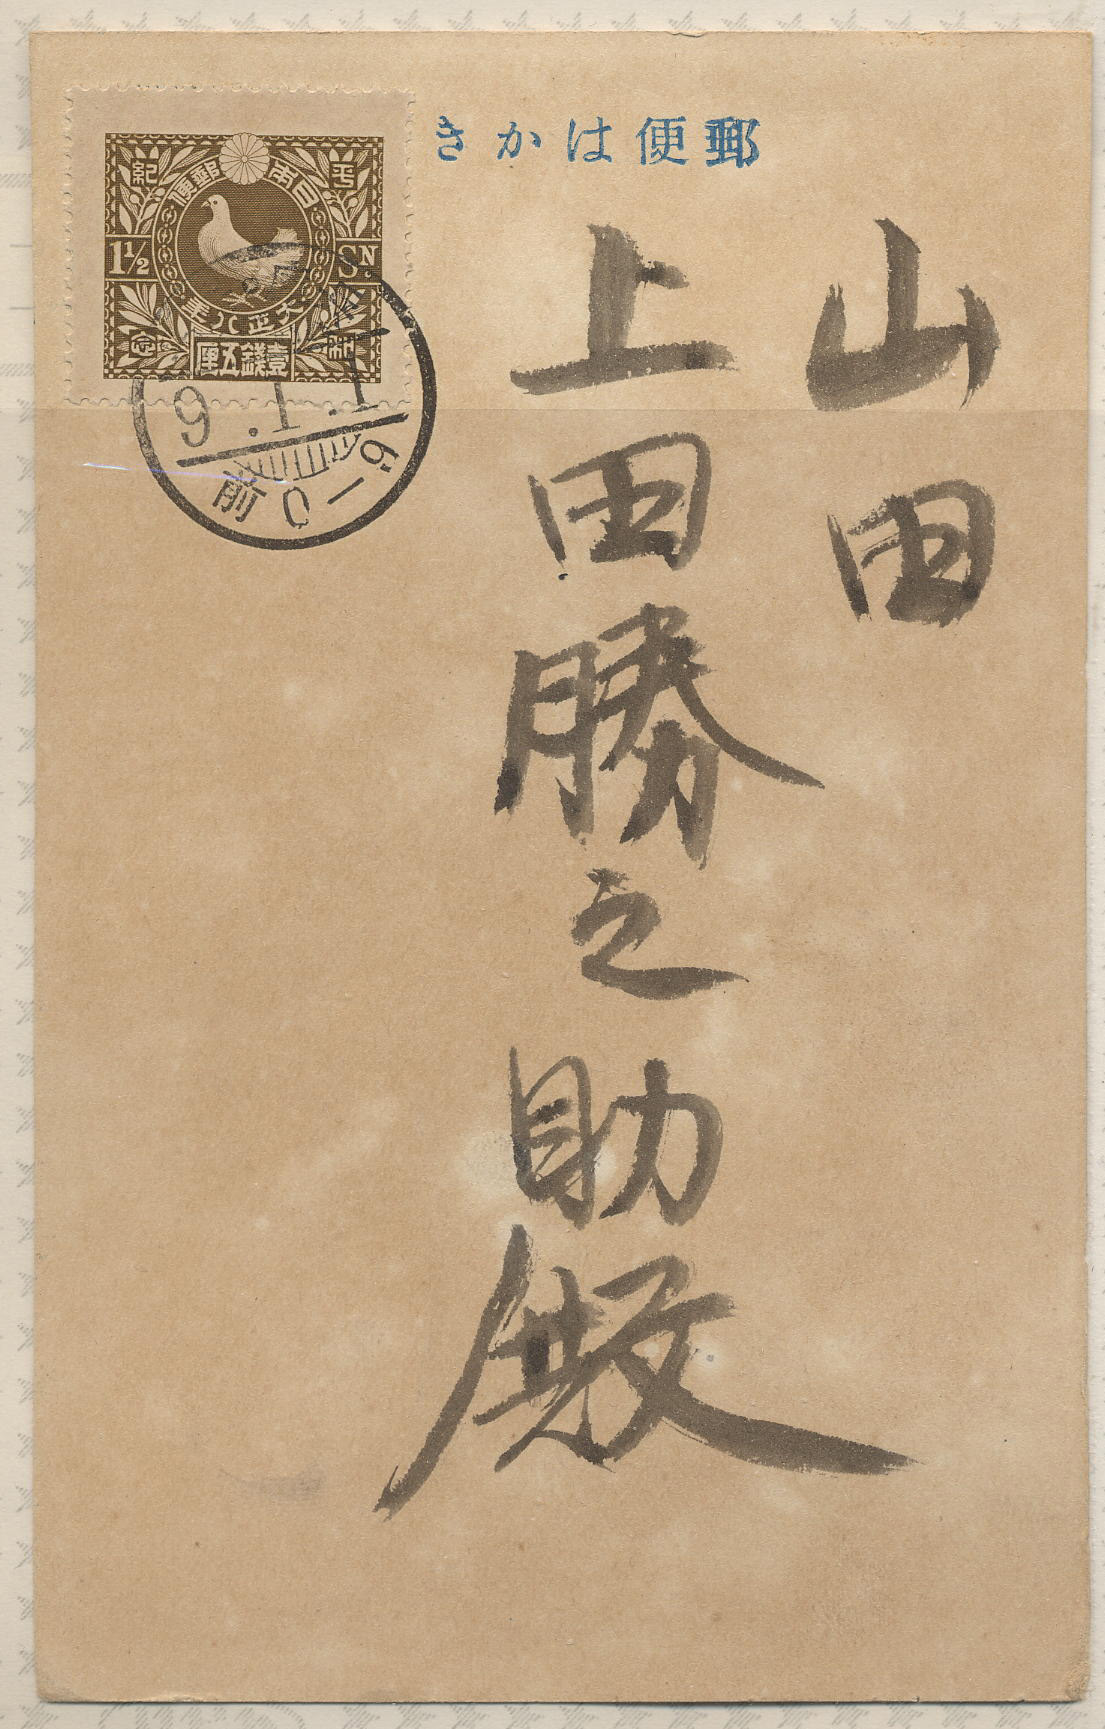 郵便はかき
山田
上田勝之助殿
日本郵便
平
紀
1½
SN
大正八年
念
和
壹錢五厘
9.1.1
前0-6